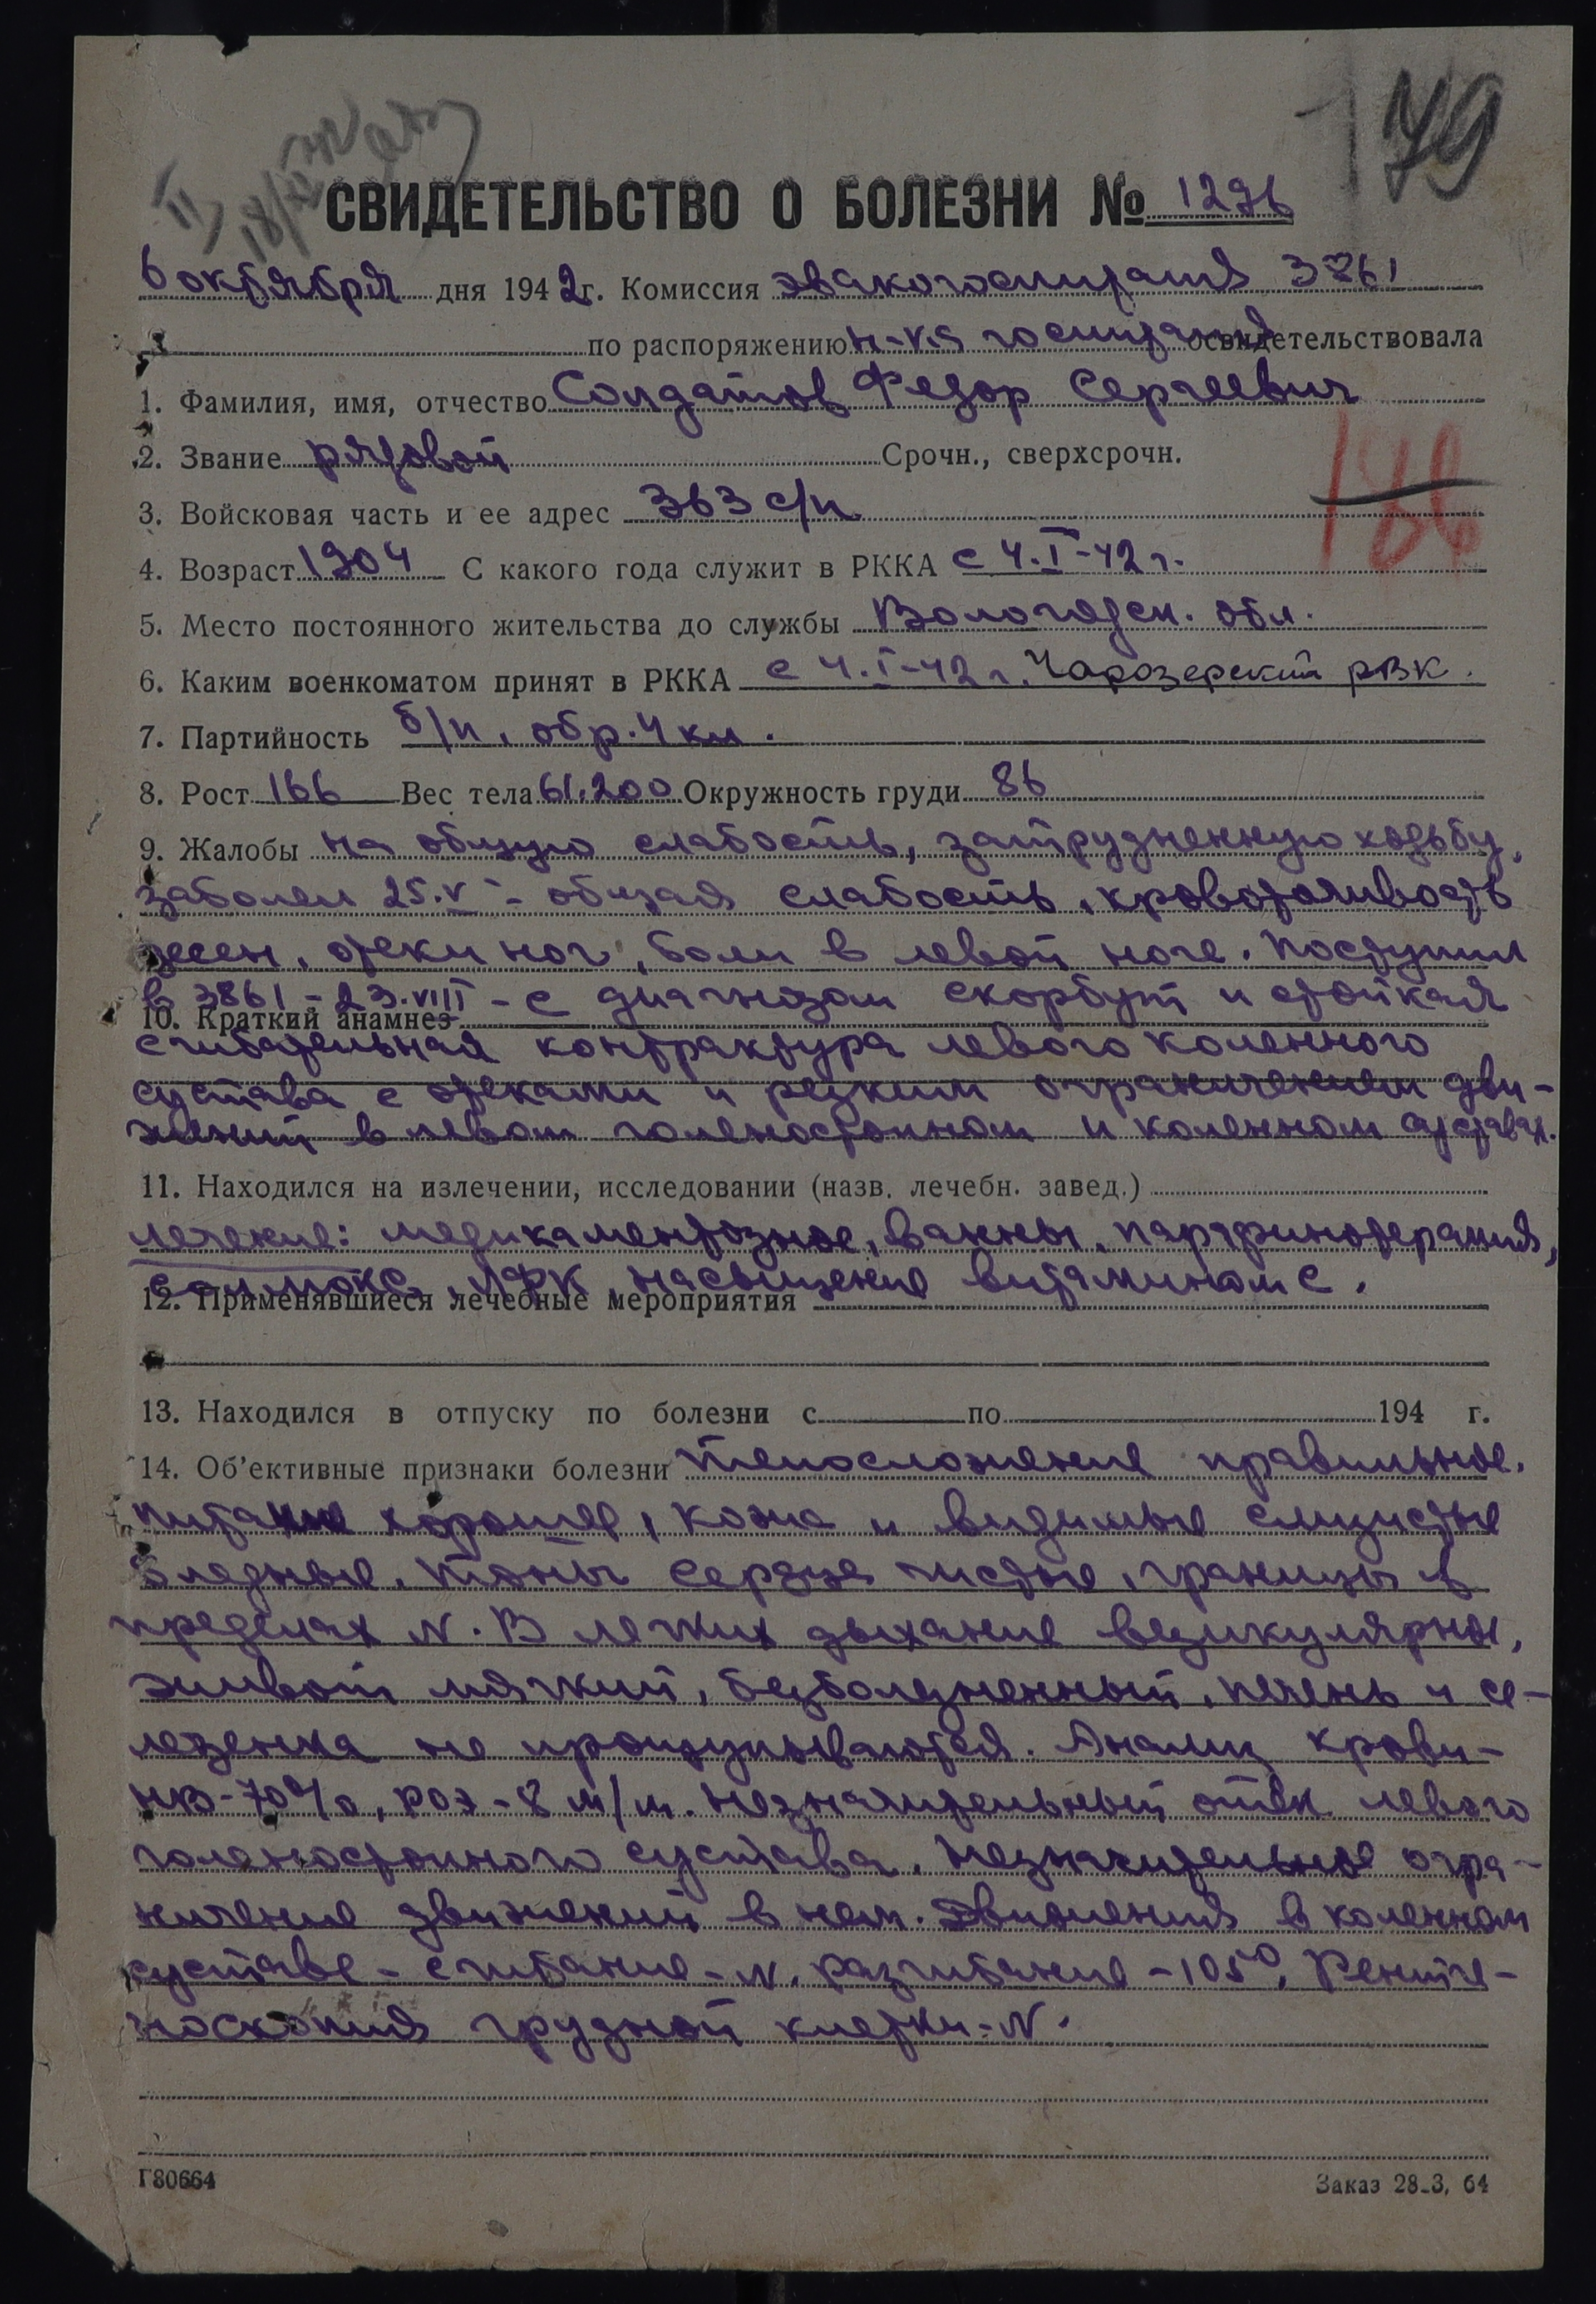 179
СВИДЕТЕЛЬСТВО О БОЛЕЗНИ № 1296
6 октября дня 1942 г. Комиссия эвакогоспиталя 3861
по распоряжению н-ка госпиталя освидетельствовала
1. Фамилия, имя, отчество Солдатов Федор Сергеевич
2. Звание рядовой Срочн., сверхсрочн.
186
3. Войсковая часть и ее адрес 363 с/п.
4. Возраст 1904 С какого года служит в РККА с 4.I-42 г.
5. Место постоянного жительства до службы Вологодск. обл.
6. Каким военкоматом принят в РККА с 4.I-42 г. Чарозерский РВК.
7. Партийность б/п, обр. 4 кл.
8. Рост 166 Вес тела 61.200 Окружность груди 86
9. Жалобы на общую слабость, затрудненную ходьбу,
заболел 25.V - общая слабость, кровоточивость
десен, отеки ног, боли в левой ноге. Поступил
в 3861 - 23.VIII - с диагнозом скорбут и стойкая
10. Краткий анамнез
сгибательная контрактура левого коленного
сустава с отеками и резким ограничением дви-
жений в левом голеностопном и коленном суставах.
11. Находился на излечении, исследовании (назв. лечебн. завед.)
лечение: медикаментозное, ванны, парафинотерапия,
соллюкс, ЛФК, насыщение витамином С.
12. Применявшиеся лечебные мероприятия
13. Находился в отпуску по болезни с по 194 г.
14. Об'ективные признаки болезни телосложение правильное,
питание хорошее, кожа и видимые слизистые
бледные. Тоны сердца чистые, границы в
пределах N. В легких дыхание везикулярное,
живот мягкий, безболезненный, печень и се-
лезенка не прощупываются. Анализ крови -
НВ-70%, РОЭ-8 м/м. Незначительный отек левого
голеностопного сустава. Незначительное огра-
ничение движений в нем. Движения в коленном
суставе - сгибание - N, разгибание - 105°. Рентге-
носкопия грудной клетки - N.
Г80664 Заказ 28-3, 64